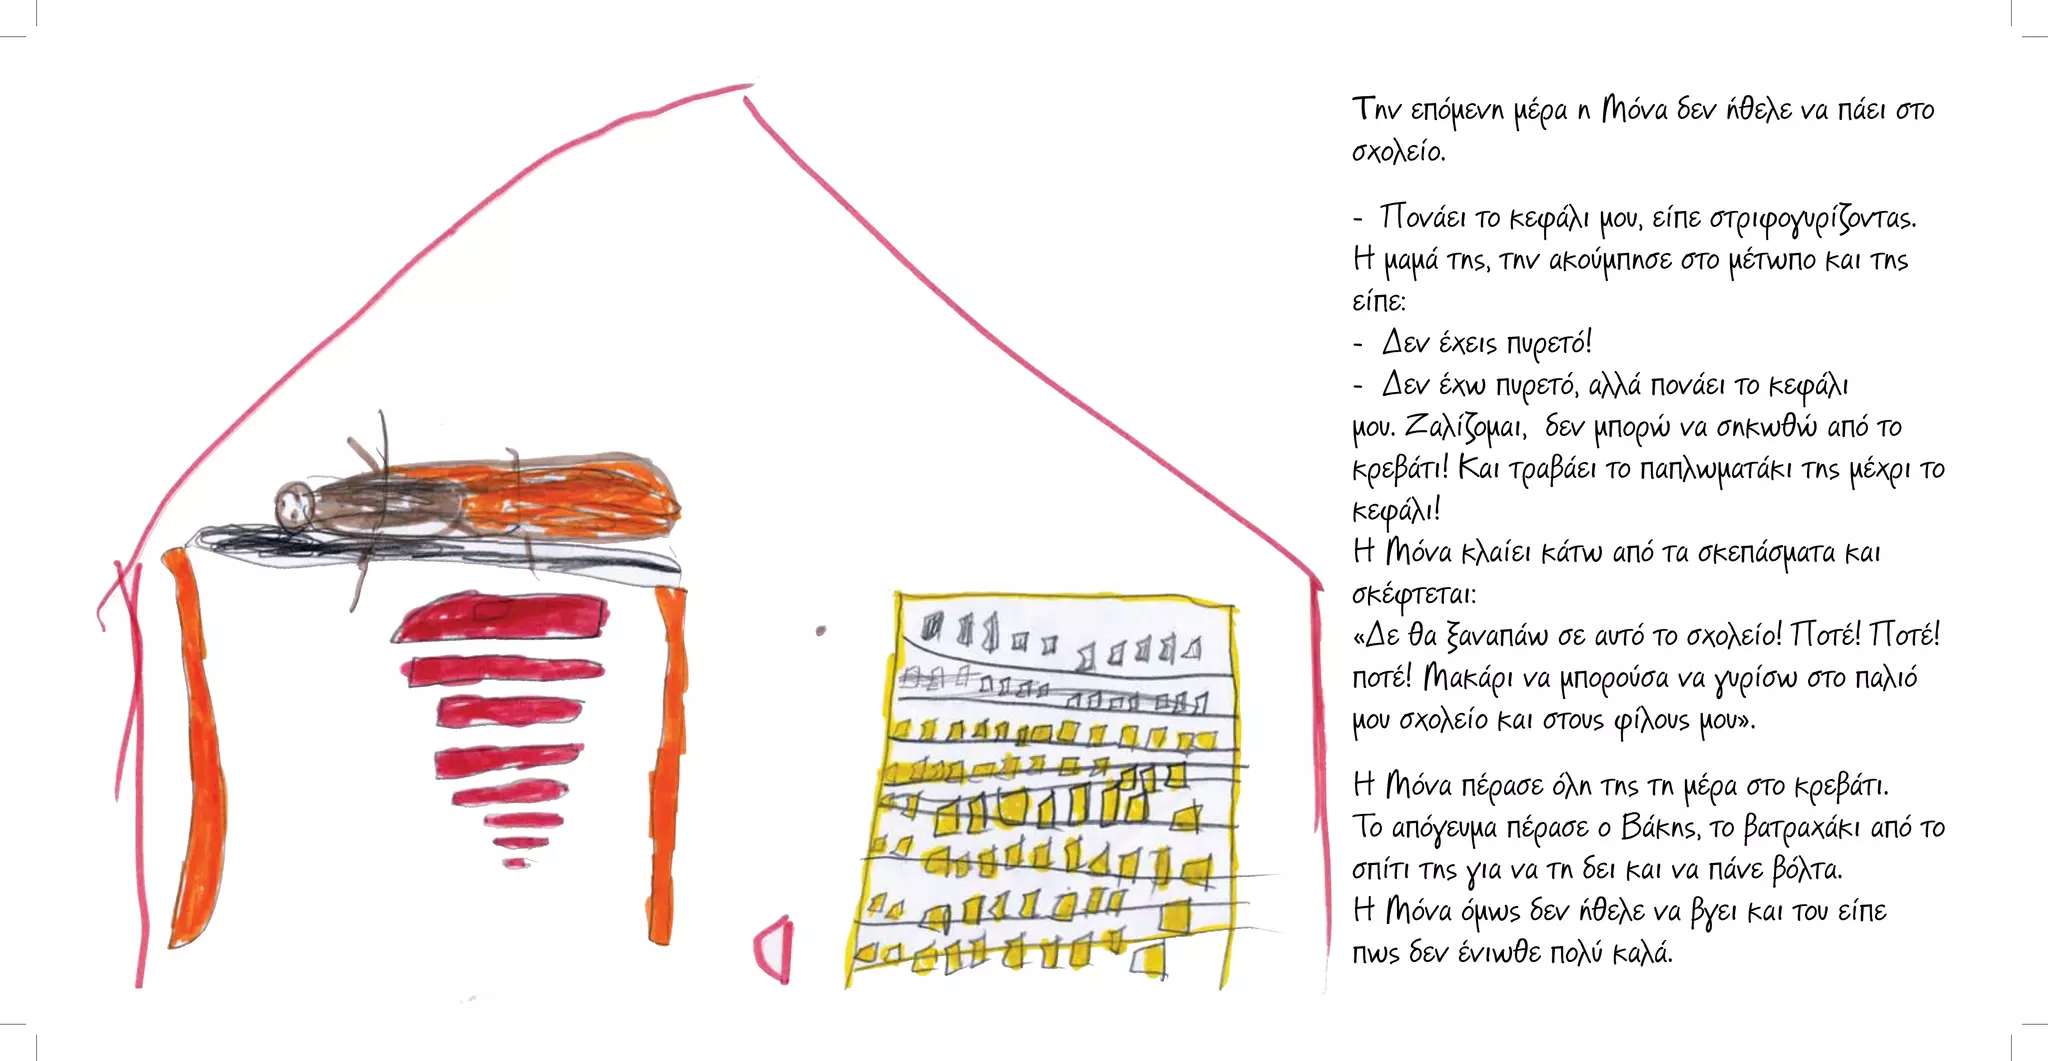 Την επόμενη μέρα η Μόνα δεν ήθελε να πάει στο
σχολείο.
- Πονάει το κεφάλι μου, είπε στριφογυρίζοντας.
Η μαμά της, την ακούμπησε στο μέτωπο και της
είπε:
- Δεν έχεις πυρετό!
- Δεν έχω πυρετό, αλλά πονάει το κεφάλι
μου. Ζαλίζομαι, δεν μπορώ να σηκωθώ από το
κρεβάτι! Και τραβάει το παπλωματάκι της μέχρι το
κεφάλι!
Η Μόνα κλαίει κάτω από τα σκεπάσματα και
σκέφτεται:
«Δε θα ξαναπάω σε αυτό το σχολείο! Ποτέ! Ποτέ!
ποτέ! Μακάρι να μπορούσα να γυρίσω στο παλιό
μου σχολείο και στους φίλους μου».
Η Μόνα πέρασε όλη της τη μέρα στο κρεβάτι.
Το απόγευμα πέρασε ο Βάκης, το βατραχάκι από το
σπίτι της για να τη δει και να πάνε βόλτα.
Η Μόνα όμως δεν ήθελε να βγει και του είπε
πως δεν ένιωθε πολύ καλά.